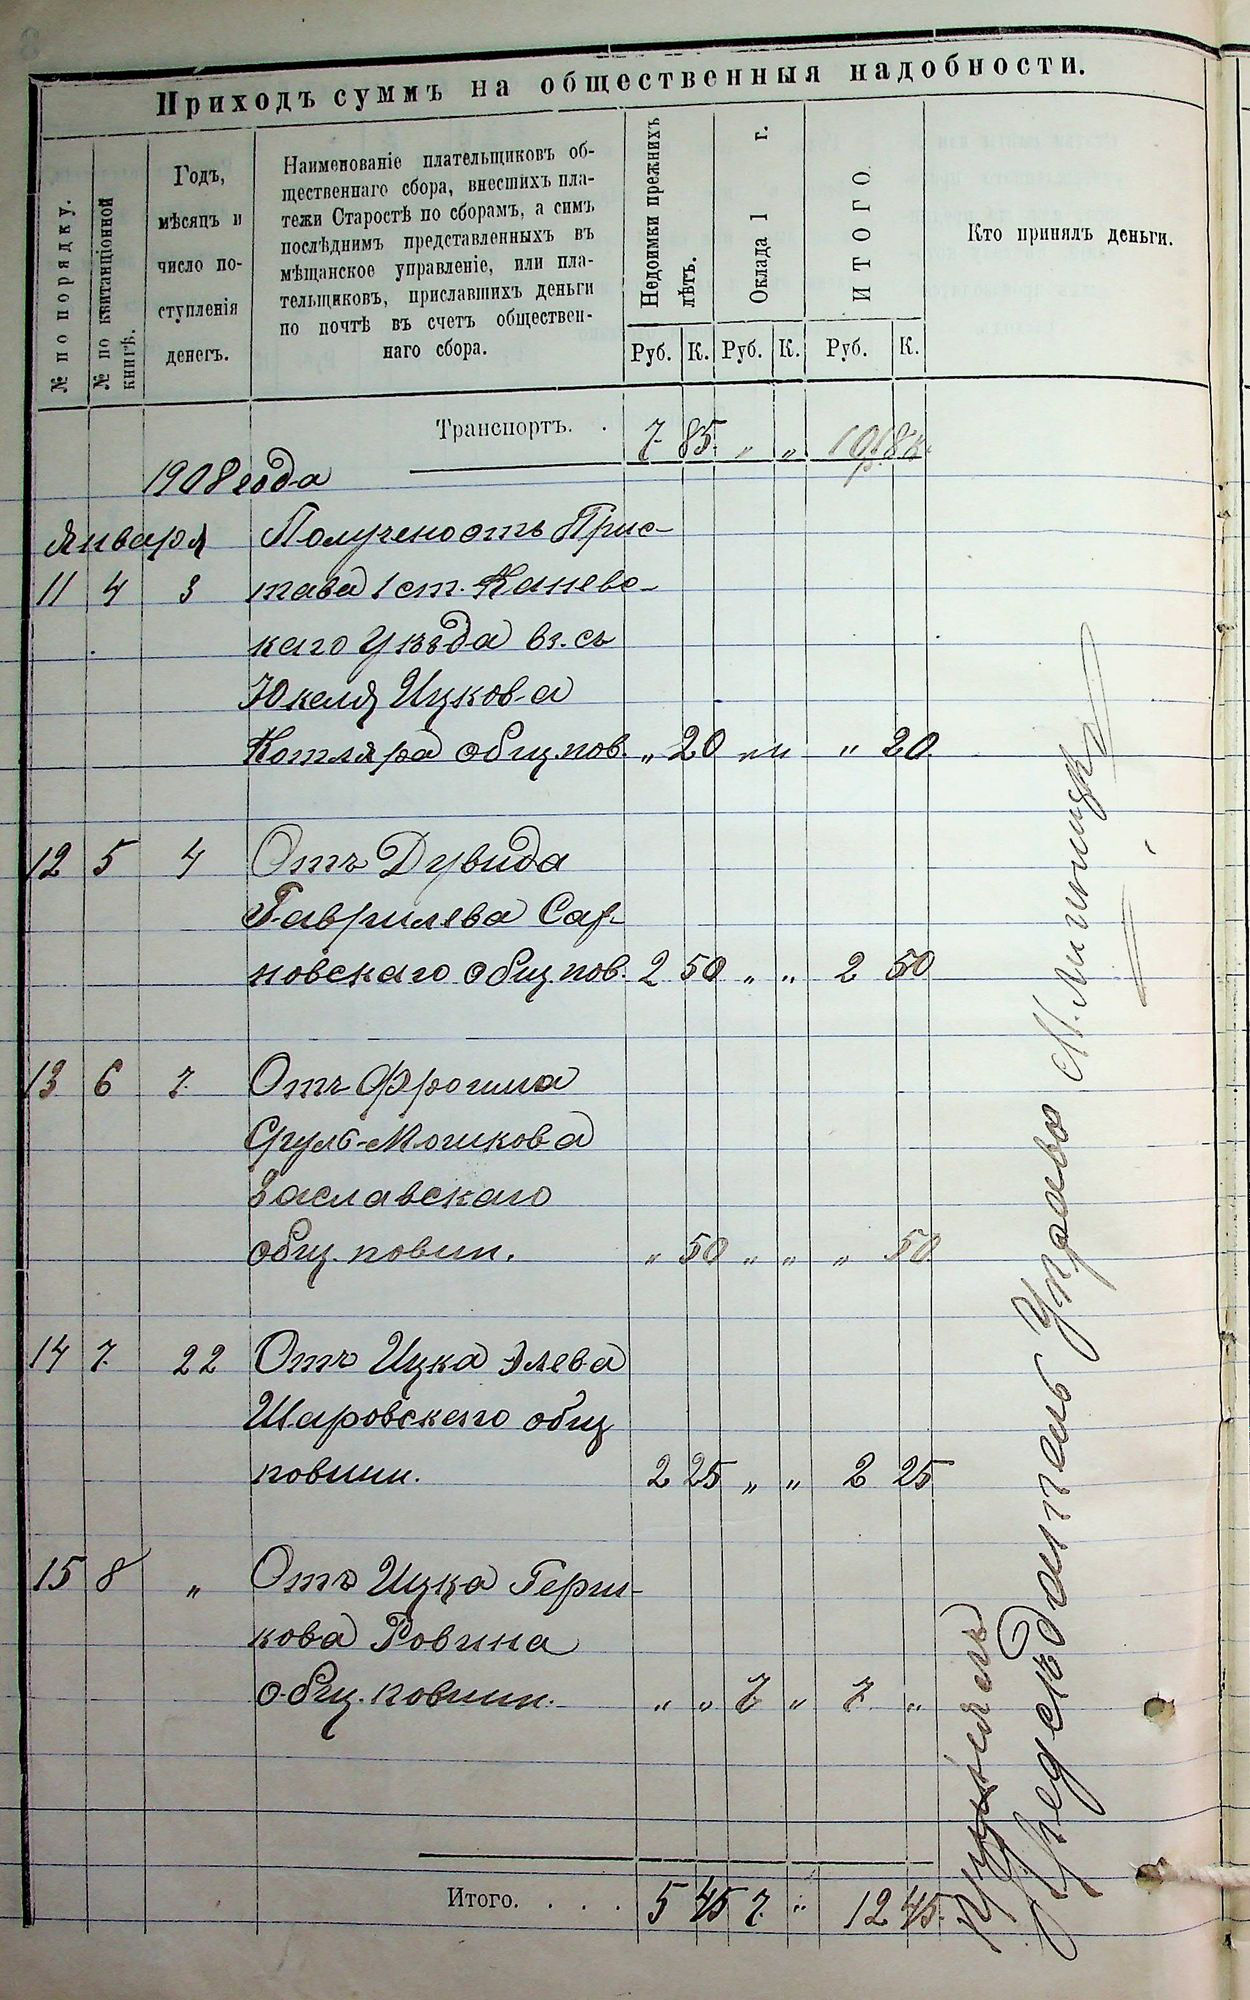 Приходъ суммъ на общественныя надобности.
№ по порядку.
№ по квитанціонной
книгѣ.
Годъ,
мѣсяцъ и
число по-
ступленія
денегъ.
Наименованіе плательщиковъ об-
щественнаго сбора, внесшихъ пла-
тежи Старостѣ по сборамъ, а симъ
послѣднимъ представленныхъ въ
мѣщанское управленіе, или пла-
тельщиковъ, приславшихъ деньги
по почтѣ въ счетъ обществен-
наго сбора.
Недоимки прежнихъ
лѣтъ.
Оклада 1 г.
ИТОГО
Кто принялъ деньги.
Руб. К. Руб. К. Руб. К.
Транспортъ. . 7 85 „ „
1908 года
Января Получено отъ Прис-
11 4 3 тава 1 ст. Каневс-
каго Уѣзда вз. съ
Юкеля Ицкова
Котляра общ. пов. „ 20 „ „ „ 20
12 5 4 Отъ Дувида
Гаврилева Сар-
новскаго общ. пов. 2 50 „ „ 2 50
13 6 7 Отъ Фроима
Сруль-Мошкова
Заславскаго
общ. повин. „ 50 „ „ „ 50
14 7 22 Отъ Ицка Элева
Шаровскаго общ
повин. 2 25 „ „ 2 25
15 8 „ Отъ Ицка Герш-
кова Ровина
общ. повин. „ „ 7 „ 7 „
Итого. . . . . 5 45 7 „ 12 45
Предсѣдатель Управы